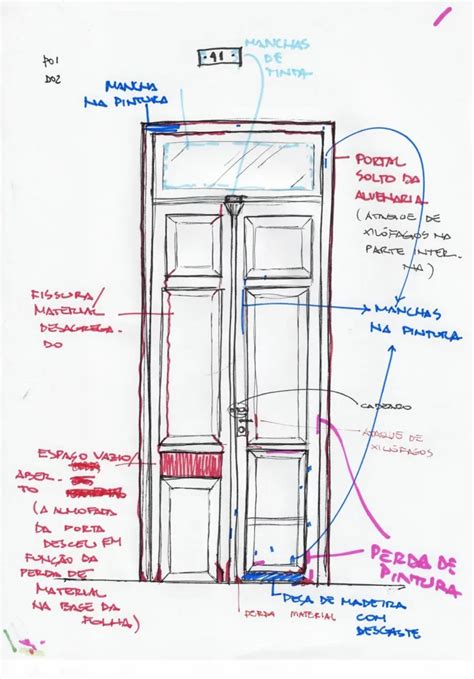 P01
D02
41
MANCHAS
DE
TINTA
MANCHA
NA PINTURA
PORTAL
SOLTO DA
ALVENARIA
(ATAQUE DE
XILÓFAGOS NA
PARTE INTER-
NA)
FISSURA/
MATERIAL
DESAGREGA-
DO
MANCHAS
NA PINTURA
CADEADO
ATAQUE DE
XILÓFAGOS
ESPAÇO VAZIO/
ABER-
TO
(A ALMOFADA
DA PORTA
DESCEU EM
FUNÇÃO DA
PERDA DE
MATERIAL
NA BASE DA
FOLHA)
PERDA DE
PINTURA
PEÇA DE MADEIRA
COM
DESGASTE
PERDA MATERIAL